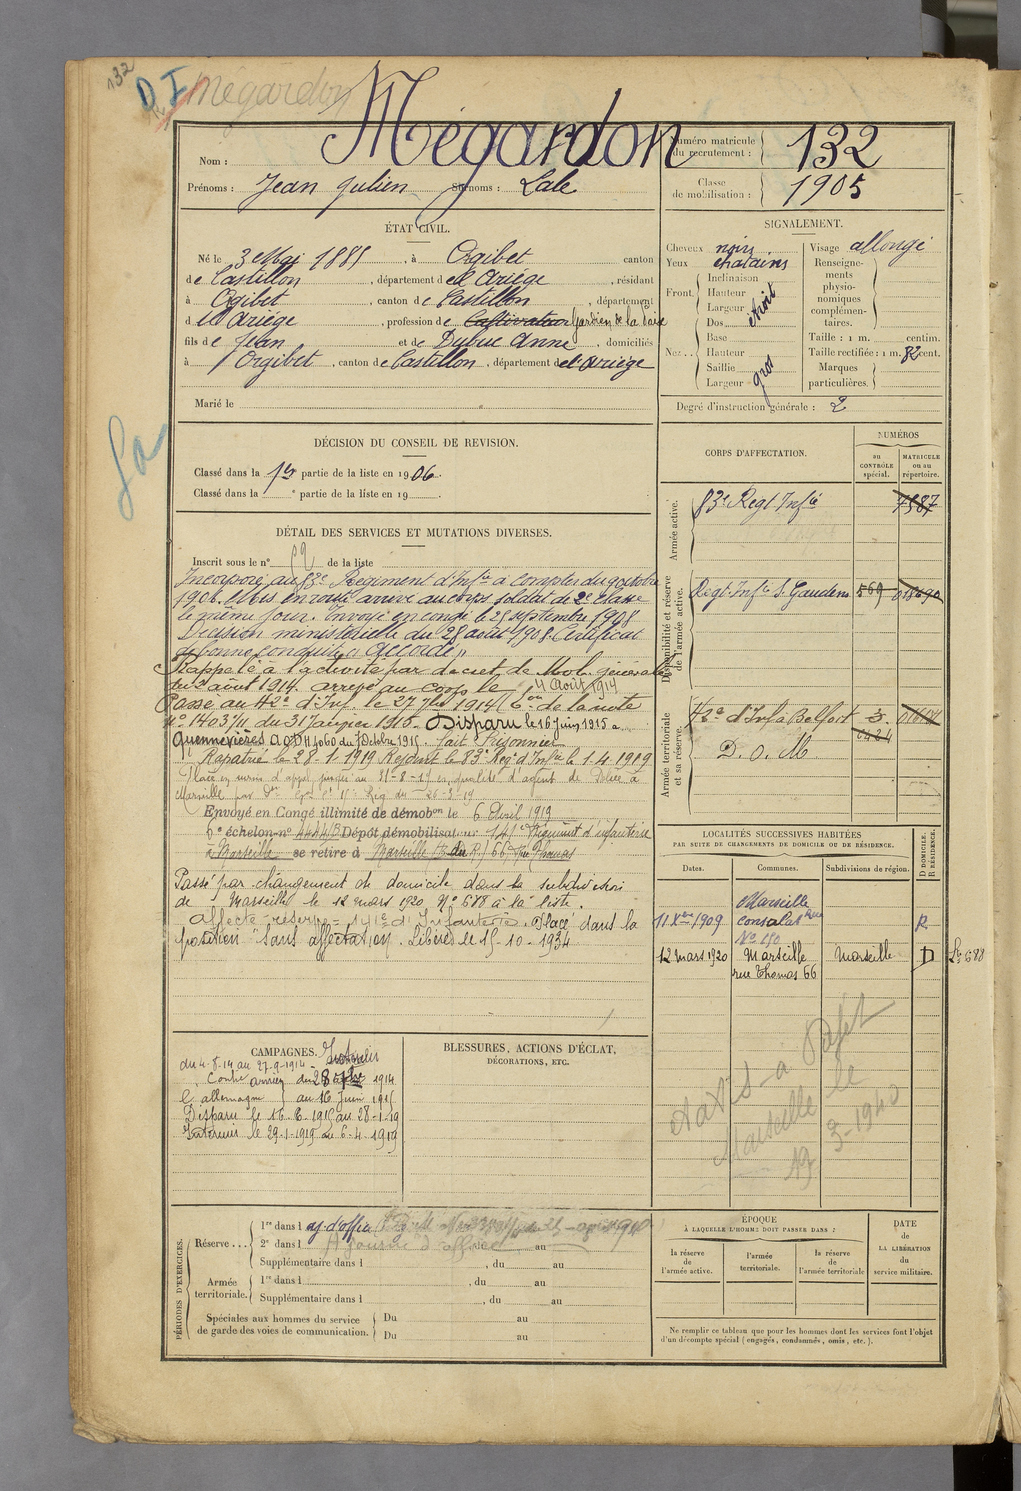 132
D I Mégardon
Nom : Mégardon
Prénoms : Jean Julien Surnoms : Lale
Numéro matricule du recrutement : 132
Classe de mobilisation : 1905
ÉTAT CIVIL.
Né le 3 Mai 1885, à Orgibet canton
de Castillon, département de l'Ariége, résidant
à Orgibet, canton de Castillon, département
d l'Ariége, profession de Cultivateur Gardien de la
fils de Jean et de Dubuc Anne, domiciliés
à Orgibet, canton de Castillon, département de l'Ariège
Marié le
SIGNALEMENT.
Cheveux noirs
Yeux chatains
Front. Inclinaison
Hauteur
Largeur étroit
Nez. . . Dos
Base
Hauteur
Saillie
Largeur gros
Visage allongé
Renseignements physionomiques complémentaires.
Taille : 1 m. centim.
Taille rectifiée : 1 m. 82 cent.
Marques particulières.
Degré d'instruction générale : 2
DÉCISION DU CONSEIL DE REVISION.
Classé dans la 1re partie de la liste en 1906.
Classé dans la e partie de la liste en 19
CORPS D'AFFECTATION.
NUMÉROS
au CONTRÔLE spécial.
MATRICULE ou au répertoire.
Armée active.
83e Régt Infie 7587
Disponibilité et réserve de l'armée active.
Régt Infie St Gaudens 569 018090
Armée territoriale et sa réserve.
42e d'Inf à Belfort
D. O. M
DÉTAIL DES SERVICES ET MUTATIONS DIVERSES.
Inscrit sous le n° 52 de la liste
Incorporé au 83e Régiment d'Infie à compter du 9 octobre
1906. Mis en route arrivé au corps, soldat de 2e classe
le même jour. Envoyé en congé le 25 septembre 1908
Décision ministerielle du 28 août 1908. Certificat
de bonne conduite "Accordé"
Rappelé à l'activité par décret de Mob. générale
du 2 août 1914. arrivé au corps le 4 Août 1914
Passé au 42e d'Inf. le 27 7bre 1914 ( de la note
n° 1403/11 du 31 Janvier 1916. Disparu le 16 Juin 1915 à
Quennevières du 7 Octobre 1915. fait Prisonnier
Rapatrié le 28-1-1919 Rejoint le 83e Régt d'Infie le 1-4-1919
Placé en sursis d'appel jusqu'au 31-8-19 en qualité d'agent de Police à
Marseille par
Envoyé en Congé illimité de démobon le 6 Avril 1919
6e échelon n° 4444/B Dépôt démobilisateur 141e Régiment d'infanterie
à Marseille se retire à Marseille 66 Rue Thomas
Passé par changement de domicile dans la subdivision
de Marseille le 12 mars 1920 N° 688 à la liste.
Affecté réserve 141e d'Infanterie. Placé dans la
position "sans affectation". Libéré le 15-10-1934
LOCALITÉS SUCCESSIVES HABITÉES
PAR SUITE DE CHANGEMENTS DE DOMICILE OU DE RÉSIDENCE.
Dates. Communes. Subdivisions de région. D DOMICILE. R RÉSIDENCE.
11 Xbre 1909 Marseille Consolat Rue No 150 R
12 mars 1920 Marseille rue Thomas 66 Marseille D 688
Marseille le
19-3-1940
CAMPAGNES.
Intérieur
du 4-8-14 au 27-9-1914
Contre l'allemagne armées du 28 7bre 1914
au 16 Juin 1915
Disparu le 16-6-1915 au 28-1-19
Intérieur le 29-1-1919 au 6-4-1919
BLESSURES, ACTIONS D'ÉCLAT,
DÉCORATIONS, ETC.
PÉRIODES D'EXERCICES.
Réserve . . .
1re dans l aj. d'office
2e dans l Ajourné d'office au
Supplémentaire dans l , du au
Armée territoriale.
1re dans l , du au
Supplémentaire dans l , du au
Spéciales aux hommes du service de garde des voies de communication.
Du au
Du au
ÉPOQUE
À LAQUELLE L'HOMME DOIT PASSER DANS :
la réserve de l'armée active.
l'armée territoriale.
la réserve de l'armée territoriale
DATE DE LA LIBÉRATION du service militaire.
Ne remplir ce tableau que pour les hommes dont les services font l'objet
d'un décompte spécial (engagés, condamnés, omis, etc.).